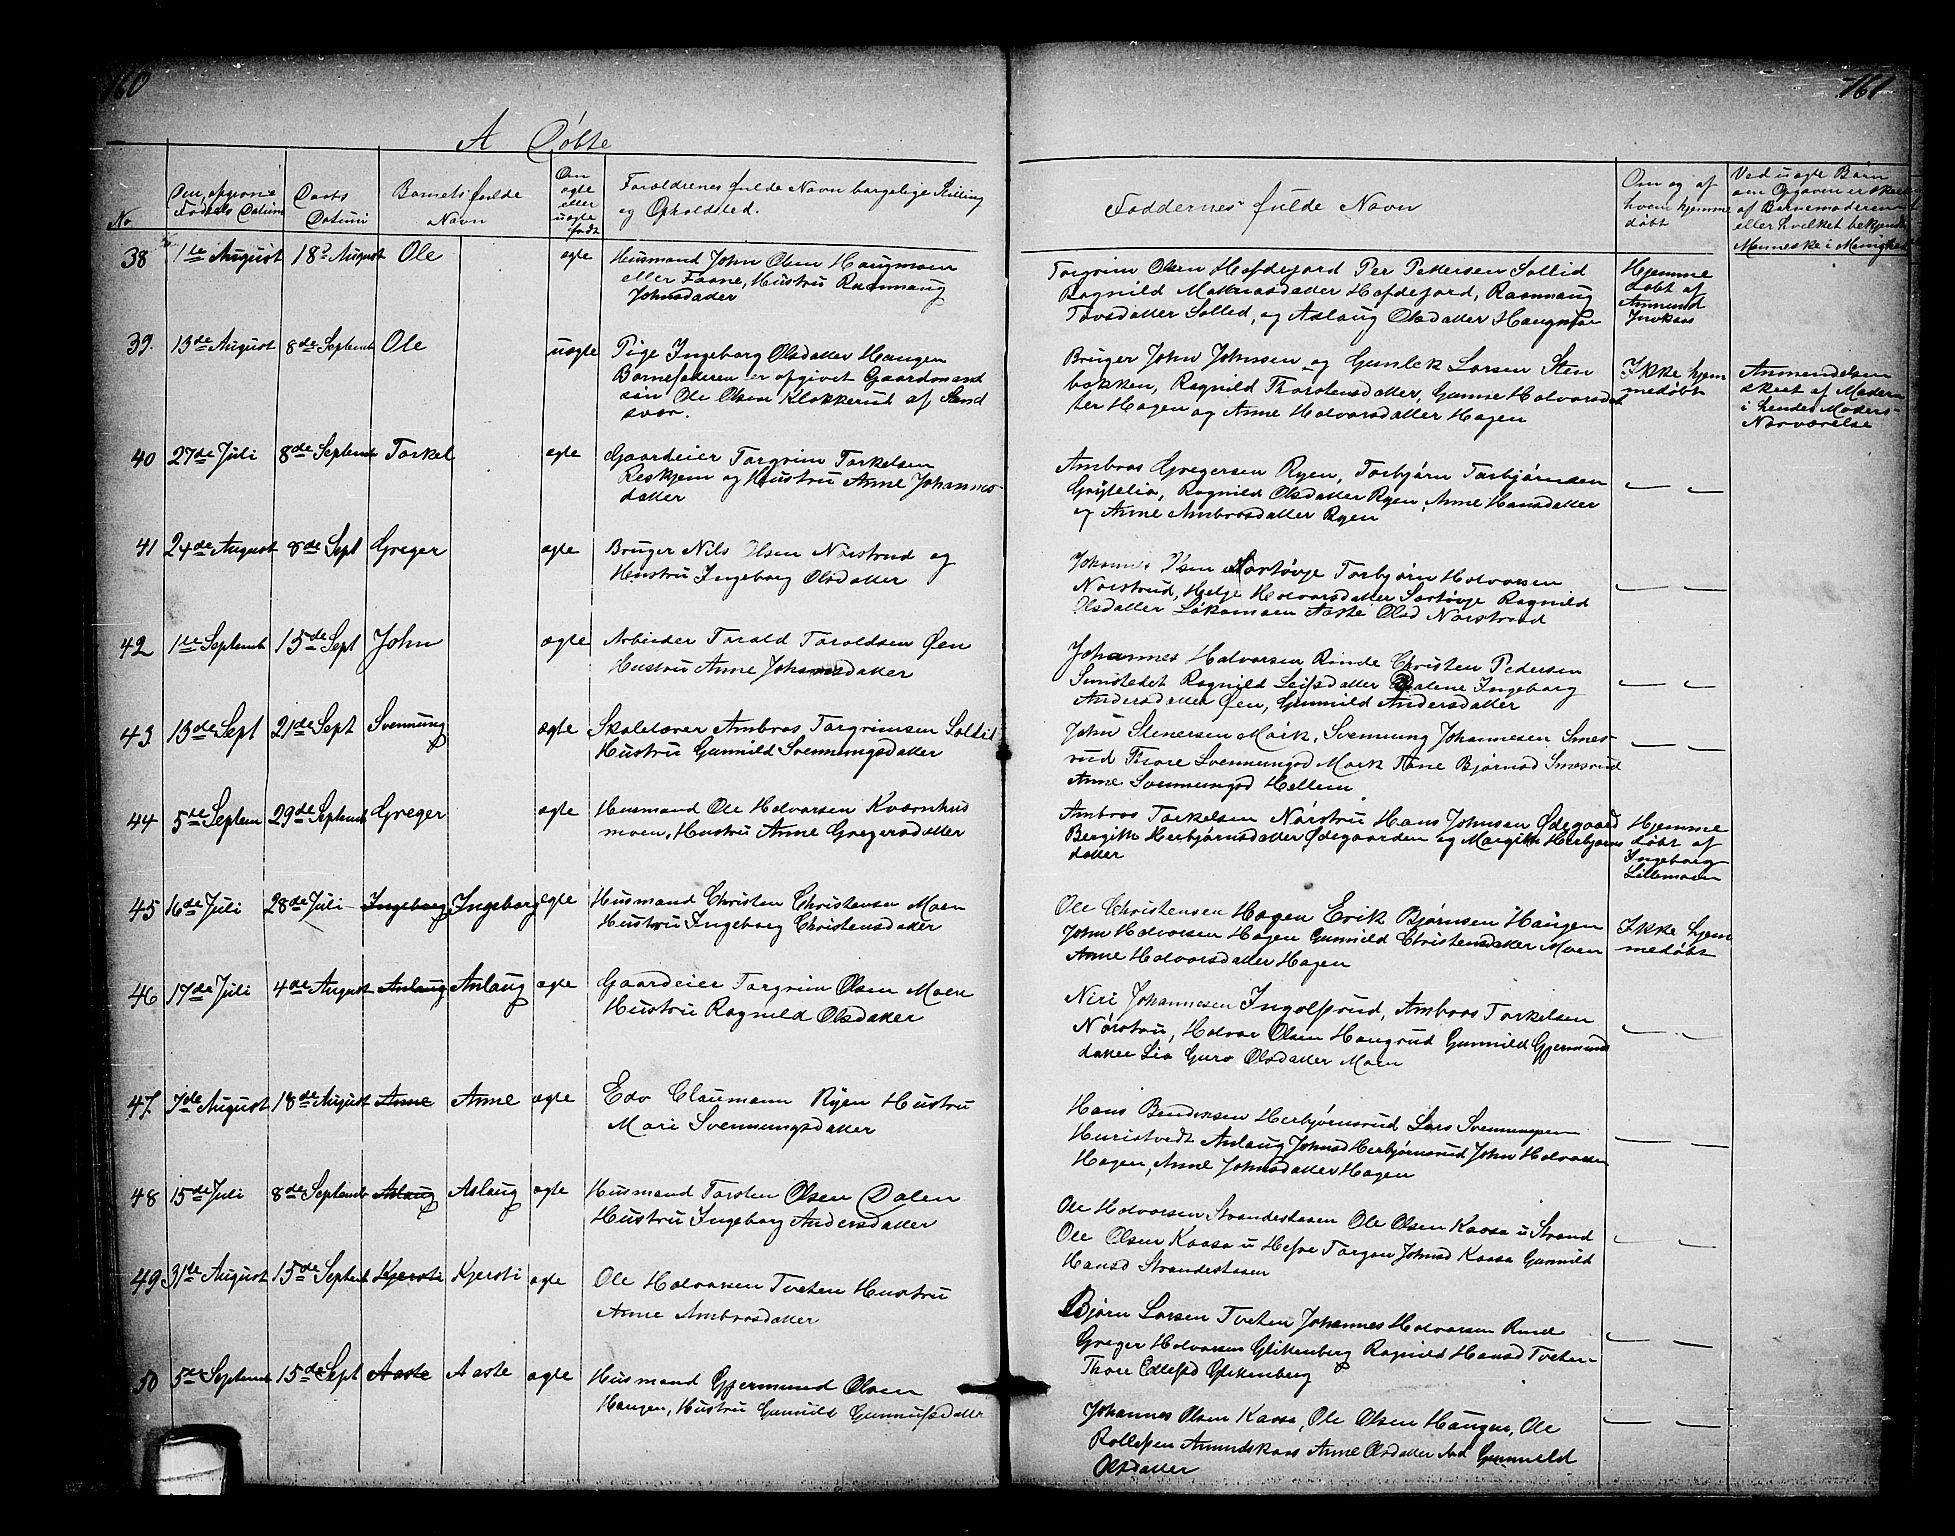 160
161
A Døbte
No
Den opgivne Fødsels Datum
Daabs Datum
Barnets fulde Navn
Om ægte eller uægte født
Forældrenes fulde Navn borgelige Stilling og Opholdsted.
Faddernes fulde Navn
Om og af hvem hjemme døbt
Ved uægte Børn om Opgaven er skeet af Barnemoderen eller hvilket bekjendt Menneske i Menighed
38 1ste August 18de August Ole ægte Husmand John Olsen Haugmoen
eller Faane, Hustru Rannaug
Johnsdatter
Torgrim Olsen Hofdejord Per Pettersen Sollid
Ragnild Mathiasdatter Hofdejord, Rannaug
Tovsdatter Sollid, og Aslaug Olsdatter Haugmoe
Hjemme
døbt af
Ammund
39. 13de August 8de Septemb Ole uægte Pige Ingeborg Olsdatter Haugen
Barnefaderen er opgivet Gaardmand
søn Ole Olsen Klokkerud af Sand
svær.
Bruger John Johnsen og Gunlek Larsen Sten
bakken, Ragnild Thorstensdatter, Gunne Halvorsdat
ter Hagen og Anne Halvorsdatter Hagen
Ikke hjem
medøbt
Anmendelsen
skeet af Moderen
i hendes Moders
Nærværelse
40 27de Juli 8de Septemb Torkel ægte Gaardeier Torgrim Torkelsen
Reskjem og Hustru Anne Johannes-
datter
Ambros Gregersen Ryen, Torbjørn Torbjørnsen
Grytelia, Ragnild Olsdatter Ryen, Anne Hansdatter
og Anne Ambrosdatter Ryen
— —
41 24de August 8de Sept Greger ægte Bruger Nils Olsen Nørstrud og
Hustru Ingeborg Olsdatter
Johannes Olsen Sortøvje Torbjørn Halvorsen
Nørstrud, Helje Halvorsdatter Sortøvje Ragnild
Olsdatter Løkamoen Aaste Olsd Nørstrud
— —
42 1ste Septemb 15de Sept John ægte Arbieder Torald Toroldsen Øen
Hustru Anne Johannesdatter
Johannes Halvorsen Rinde Christen Pedersen
Sunstedet Ragnild Leifsdatter Dalene Ingeborg
Andersdatter Øen, Gunnild Andersdatter
— —
43 13de Sept 21de Sept Svennung ægte Skolelærer Ambros Torgrimsen Sollid
Hustru Gunnild Svennungsdatter
John Stenersen Mørk, Svennung Johannesen Smes-
rud Thore Svennungsd Mørk Tone Bjørnsd Smesrud
Anne Svennungsd Hellem
— —
44 5te Septem 29de Septemb Greger ægte Husmand Ole Halvorsen Kværnhus
moen, Hustru Anne Gregersdatter
Ambros Torkelsen Nørstru Hans Johnsen Ødegaard
Bergitte Herbjørnsdatter Ødegaarden og Margitte Herbjørns
datter
Hjemme
døbt af
Ingeborg
Lillemoen
45 16de Juli 28de Juli Ingeborg Ingeborg ægte Husmand Christen Christensen Moen
Hustru Ingeborg Christensdatter
Ole Christensen Hagen Erik Bjørnsen Haugen
John Halvorsen Hagen Gunnild Christensdatter Moen
Anne Halvorsdatter Hagen
Ikke hjem
medøbt
46 17de Juli 4de August Anlaug Anlaug ægte Gaardeier Torgrim Olsen Moen
Hustru Ragnild Olsdatter
Niri Johannesen Ingolfsrud, Ambros Torkelsen
Nørstru, Halvor Olsen Haugrud Gunnild Gjermund
datter Lia Guro Olsdatter Moen
— —
47. 7de August 18de August Anne Anne ægte Edv Claumann Ryen Hustru
Mari Svennungsdatter
Hans Bendixsen Herbjørnsrud Lars Svennungsen
Huristvedt Anlaug Johnsd Herbjørnsrud John Halvorsen
Hagen, Anne Johnsdatter Hagen
— —
48 15de Juli 8de Septemb Aslaug Aslaug ægte Husmand Torsten Olsen Dalen
Hustru Ingeborg Andersdatter
Ole Halvorsen Strandestaaen Ole Olsen Kaasa u Strand
Ole Olsen Kaasa u Hefre Torgon Johnsd Kaasa Gunnild
Hansd Strandestaaen
— —
49 31te August 15de Septemb Kjersti Kjersti ægte Ole Halvorsen Tveten Hustru
Anne Ambrosdatter
Bjørn Larsen Tveten Johannes Halvorsen Rinde
Greger Halvorsen Glittenberg Ragnild Hansd Tveten
Thore Edlefsd Glittenberg
— —
50 5te Septemb 15de Sept Aaste Aaste ægte Husmand Gjermund Olsen
Haugen, Hustru Gunnild Gunnufsdatter
Johannes Olsen Kaasa, Ole Olsen Haugen, Ole
Rollefsen Amundskaas Anne Olsdatter Gunnild
Olsdatter
— —